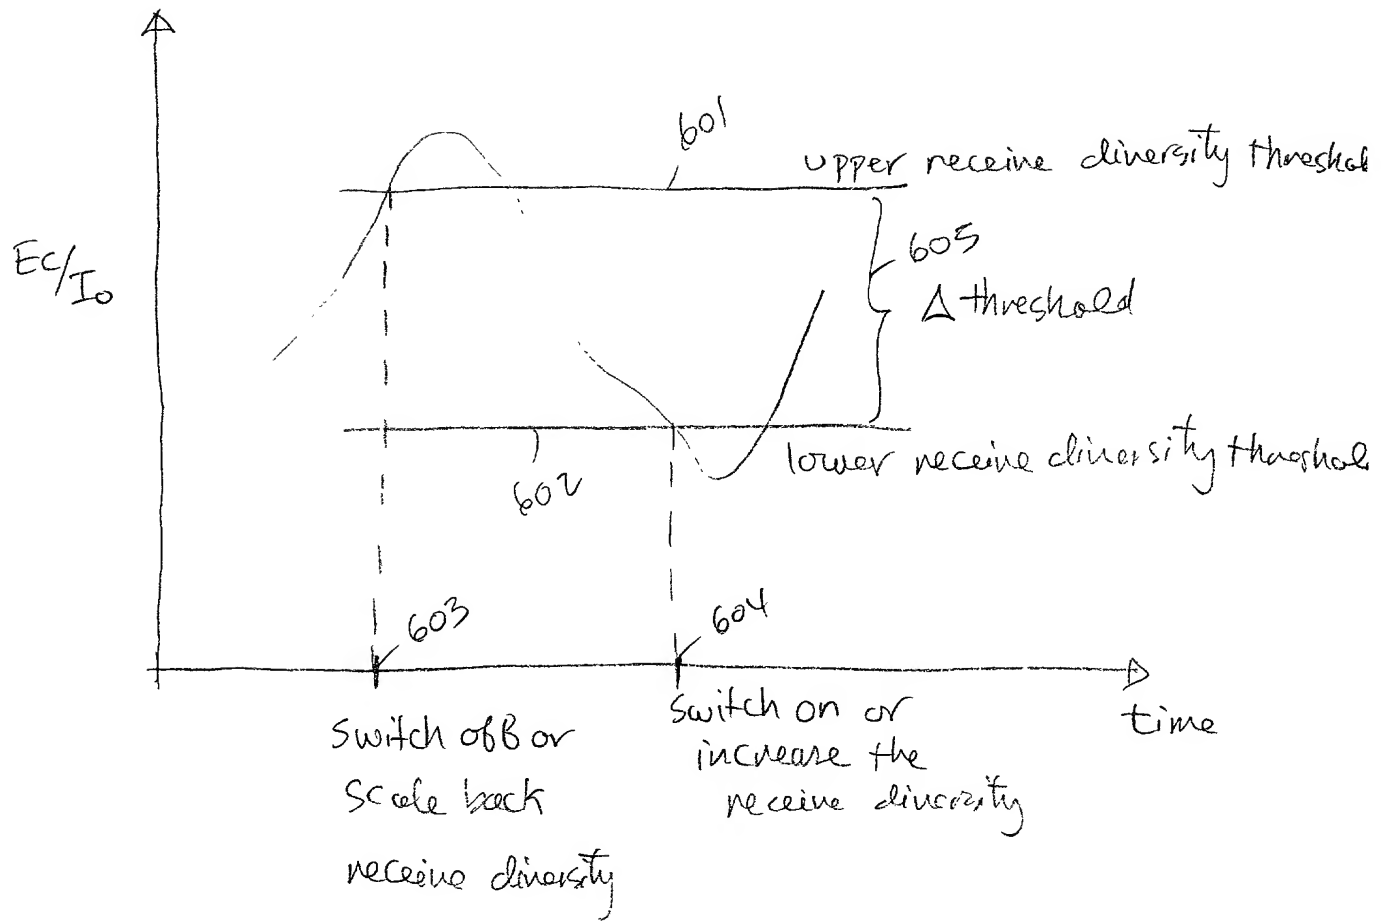 601
upper receive diversity threshol
605
Ec/Io
Δ threshold
lower receive diversity threshol
602
603
604
switch off or
scale back
receive diversity
switch on or
increase the
receive diversity
time